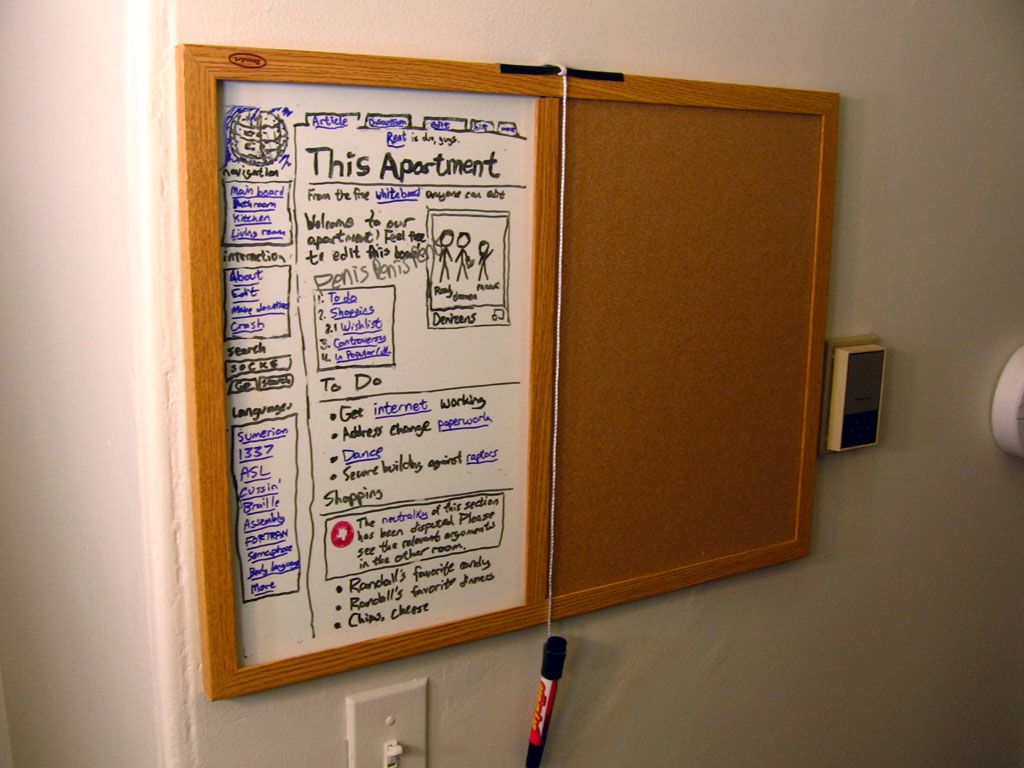 Article Discussion edit hist
Rent is due, guys.
This Apartment
From the free whiteboard anyone can edit
navigation
Main board
Bathroom
Kitchen
Living room
interaction
About
Edit
Make donation
Crash
search
SOCKS
Go Search
Languages
Sumerian
1337
ASL
Cussin'
Braille
Assembly
FORTRAN
Semaphore
Body language
More
Welcome to our
apartment! Feel free
to edit this
Penis Penis
1. To do
2. Shopping
2.1 Wishlist
3. Controversy
4. In Popular Cult.
Denizens
To Do
• Get internet working
• Address change paperwork
• Dance
• Secure building against raptors
Shopping
The neutrality of this section
has been disputed. Please
see the relevant arguments
in the other room.
• Randall's favorite candy
• Randall's favorite dinners
• Chips, cheese